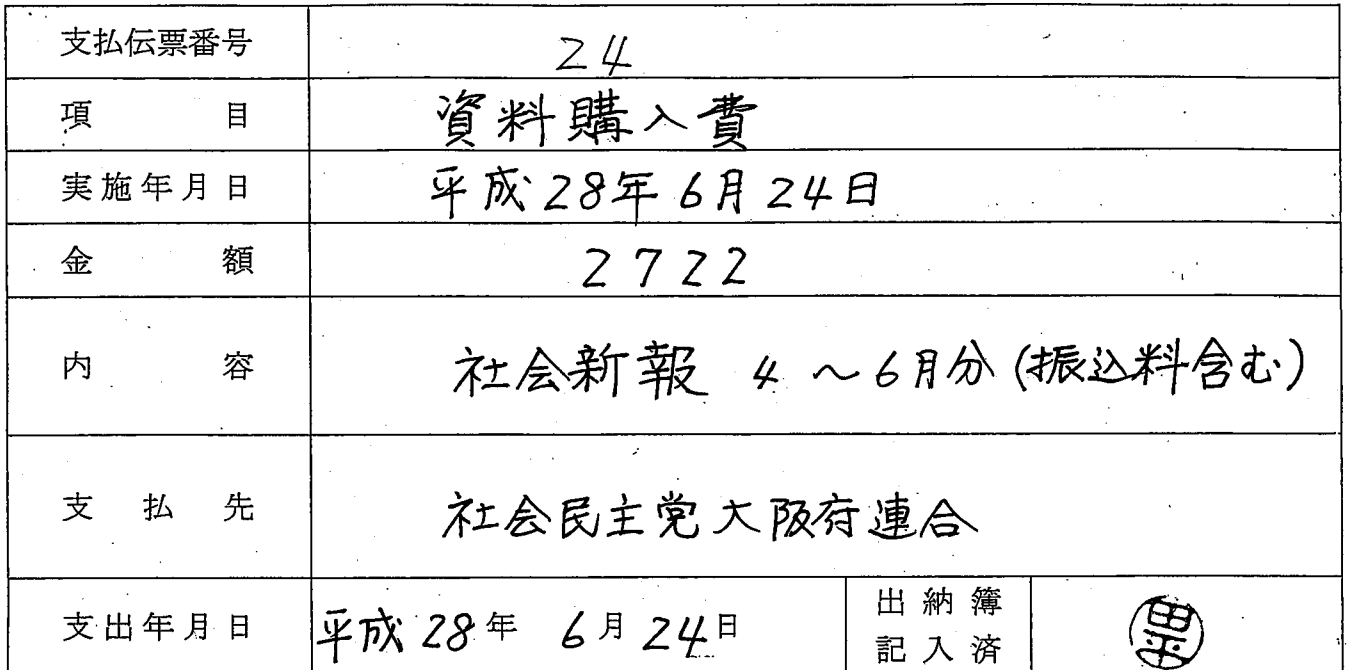 支払伝票番号 24
項目 資料購入費
実施年月日 平成28年6月24日
金額 2722
内容 社会新報 4~6月分(振込料含む)
支払先 社会民主党大阪府連合
支出年月日 平成28年 6月24日 出納簿記入済